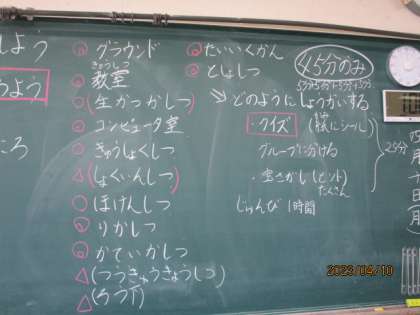 しよう
ろう
ころ
◎ グラウンド
きょうしつ
◎ 教室
○(生がつかしつ)
◎ コンピュータ室
○ きゅうしょくしつ
△(しょくいんしつ)
○ ほけんしつ
○ りかしつ
○ かていかしつ
△(つうきゅうきょうしつ)
△(ろう下)
◎ たいいくかん
◎ としょしつ
45分のみ
どのようにしょうかいする
・クイズ
グループに分ける
・宝さがし(ヒント)
たくさん
25分
じゅんび 1時間
四月十日
2023/04/10